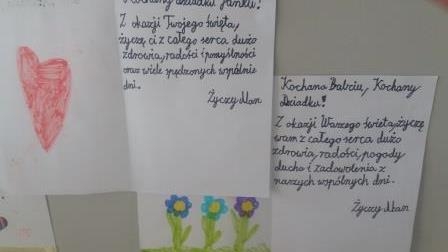 Kochany Dziadku Janku!
Z okazji Twojego święta,
życzę ci z całego serca dużo
zdrowia, radości i pomyślności
oraz wiele spędzonych wspólnie
dni.
Życzy Alan
Kochana Babciu, Kochany
Dziadku!
Z okazji Waszego święta, życzę
wam z całego serca dużo
zdrowia, radości, pogody
ducha i zadowolenia z
naszych wspólnych dni.
Życzy Alan